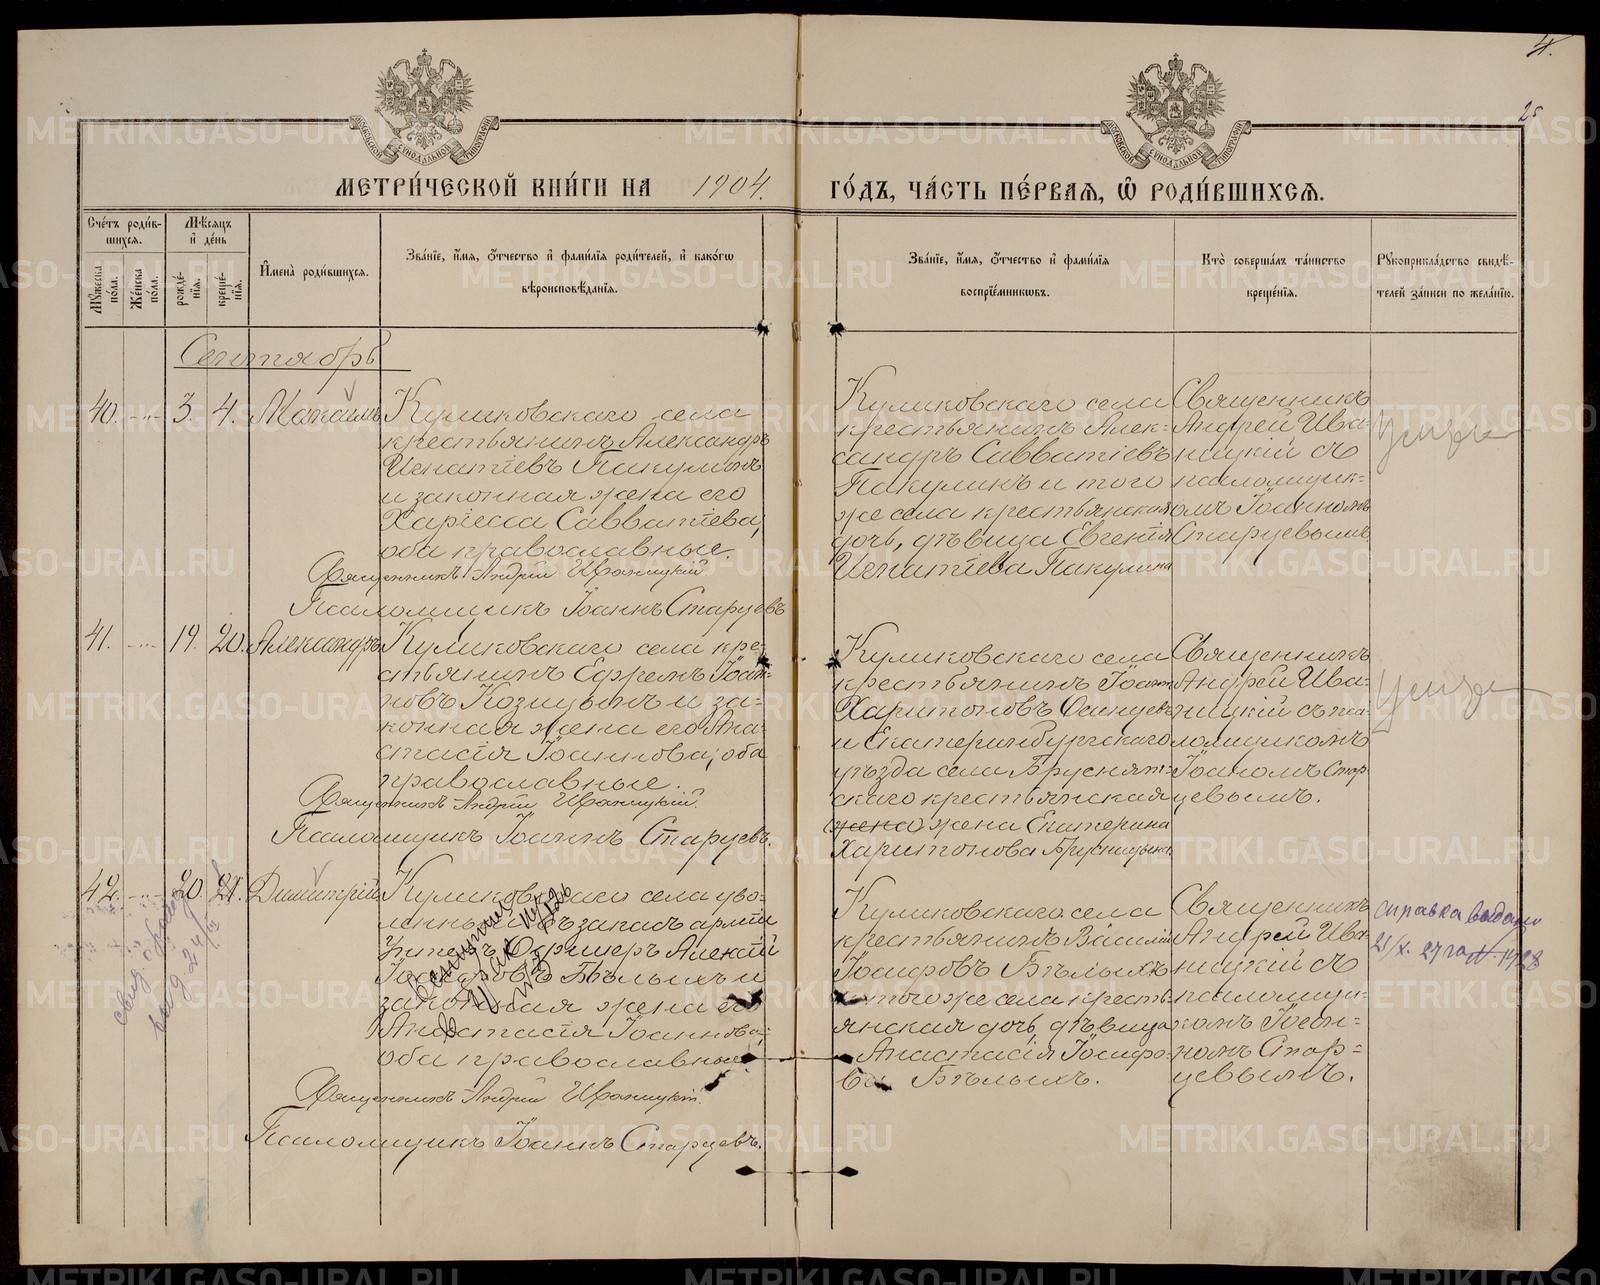 4.
25
МОСКОВСКОЙ СѴНОДАЛЬНОЙ ТИПОГРАФІИ
МОСКОВСКОЙ СѴНОДАЛЬНОЙ ТИПОГРАФІИ
МЕТРИ́ЧЕСКОЙ КНИ́ГИ НА 1904. ГО́ДЪ, ЧА́СТЬ ПЕ́РВАЯ, Ѽ РОДИ́ВШИХСЯ.
Сче́тъ роди́в-
шихся.
Мꙋжеска по́ла.
Же́нска по́ла.
Мѣ́сяцъ
и҆ де́нь
рожде́-
нїя.
креще́-
нїя.
И҆мена̀ роди́вшихся.
Зва́нїе, и҆́мя, ѻ҆́тчество и҆ фами́лїя роди́телей, и҆ како́гѡ
вѣроисповѣ́данїя.
Зва́нїе, и҆́мя, ѻ҆́тчество и҆ фами́лїя
воспрїе́мникѡвъ.
Кто̀ соверша́лъ та́инство
креще́нїя.
Рꙋкоприкла́дство свидѣ́-
телей за́писи по жела́нїю.
Сентябрь
40. -..- 3. 4. Михаилъ
Куликовскаго села
крестьянинъ Александръ
Игнатіевъ Пакулинъ
и законная жена его
Харіесса Савватіева,
оба православные.
Священникъ Андрей Иваницкій
Псаломщикъ Іоаннъ Старцевъ
Куликовскаго села
крестьянинъ Алек-
сандръ Савватіевъ
Пакулинъ и того
же села крестьянская
дочь, дѣвица Евгенія
Игнатіева Пакулина
Священникъ
Андрей Ива-
ницкій съ
псаломщик-
омъ Іоанномъ
Старцевымъ
41. -..- 19. 20. Александръ
Куликовскаго села кре-
стьянинъ Ефремъ Іоан-
новъ Козицынъ и за-
конная жена его Ана-
стасія Іоаннова, оба
православные.
Священникъ Андрей Иваницкій.
Псаломщикъ Іоаннъ Старцевъ.
Куликовскаго села
крестьянинъ Іоаннъ
Харитоновъ
и Екатеринбургскаго
уѣзда села Бруснят-
скаго крестьянская
жена жена Екатерина
Харитонова Брусницына.
Священникъ
Андрей Ива-
ницкій съ пса-
ломщикомъ
Іоаномъ Стар-
цевымъ.
42. -..- 20. 21. Димитрій
Куликовскаго села уво-
ленный въ запасъ арміи
Унтеръ Офицеръ Алексій
Іосифовъ Бѣлыхъ и
законная жена его
Анастасія Іоаннова,
оба православные.
Священникъ Андрей Иваницкій.
Псаломщикъ Іоаннъ Старцевъ.
Куликовскаго села
крестьянинъ Василій
Іосифовъ Бѣлыхъ
и того же села кресть-
янская дочь, дѣвица
Анастасія Іосифо-
ва Бѣлыхъ.
Священникъ
Андрей Ива-
ницкій съ
псаломщи-
комъ Іоан-
номъ Стар-
цевымъ.
справка выдана
21/X. 27 года
1928